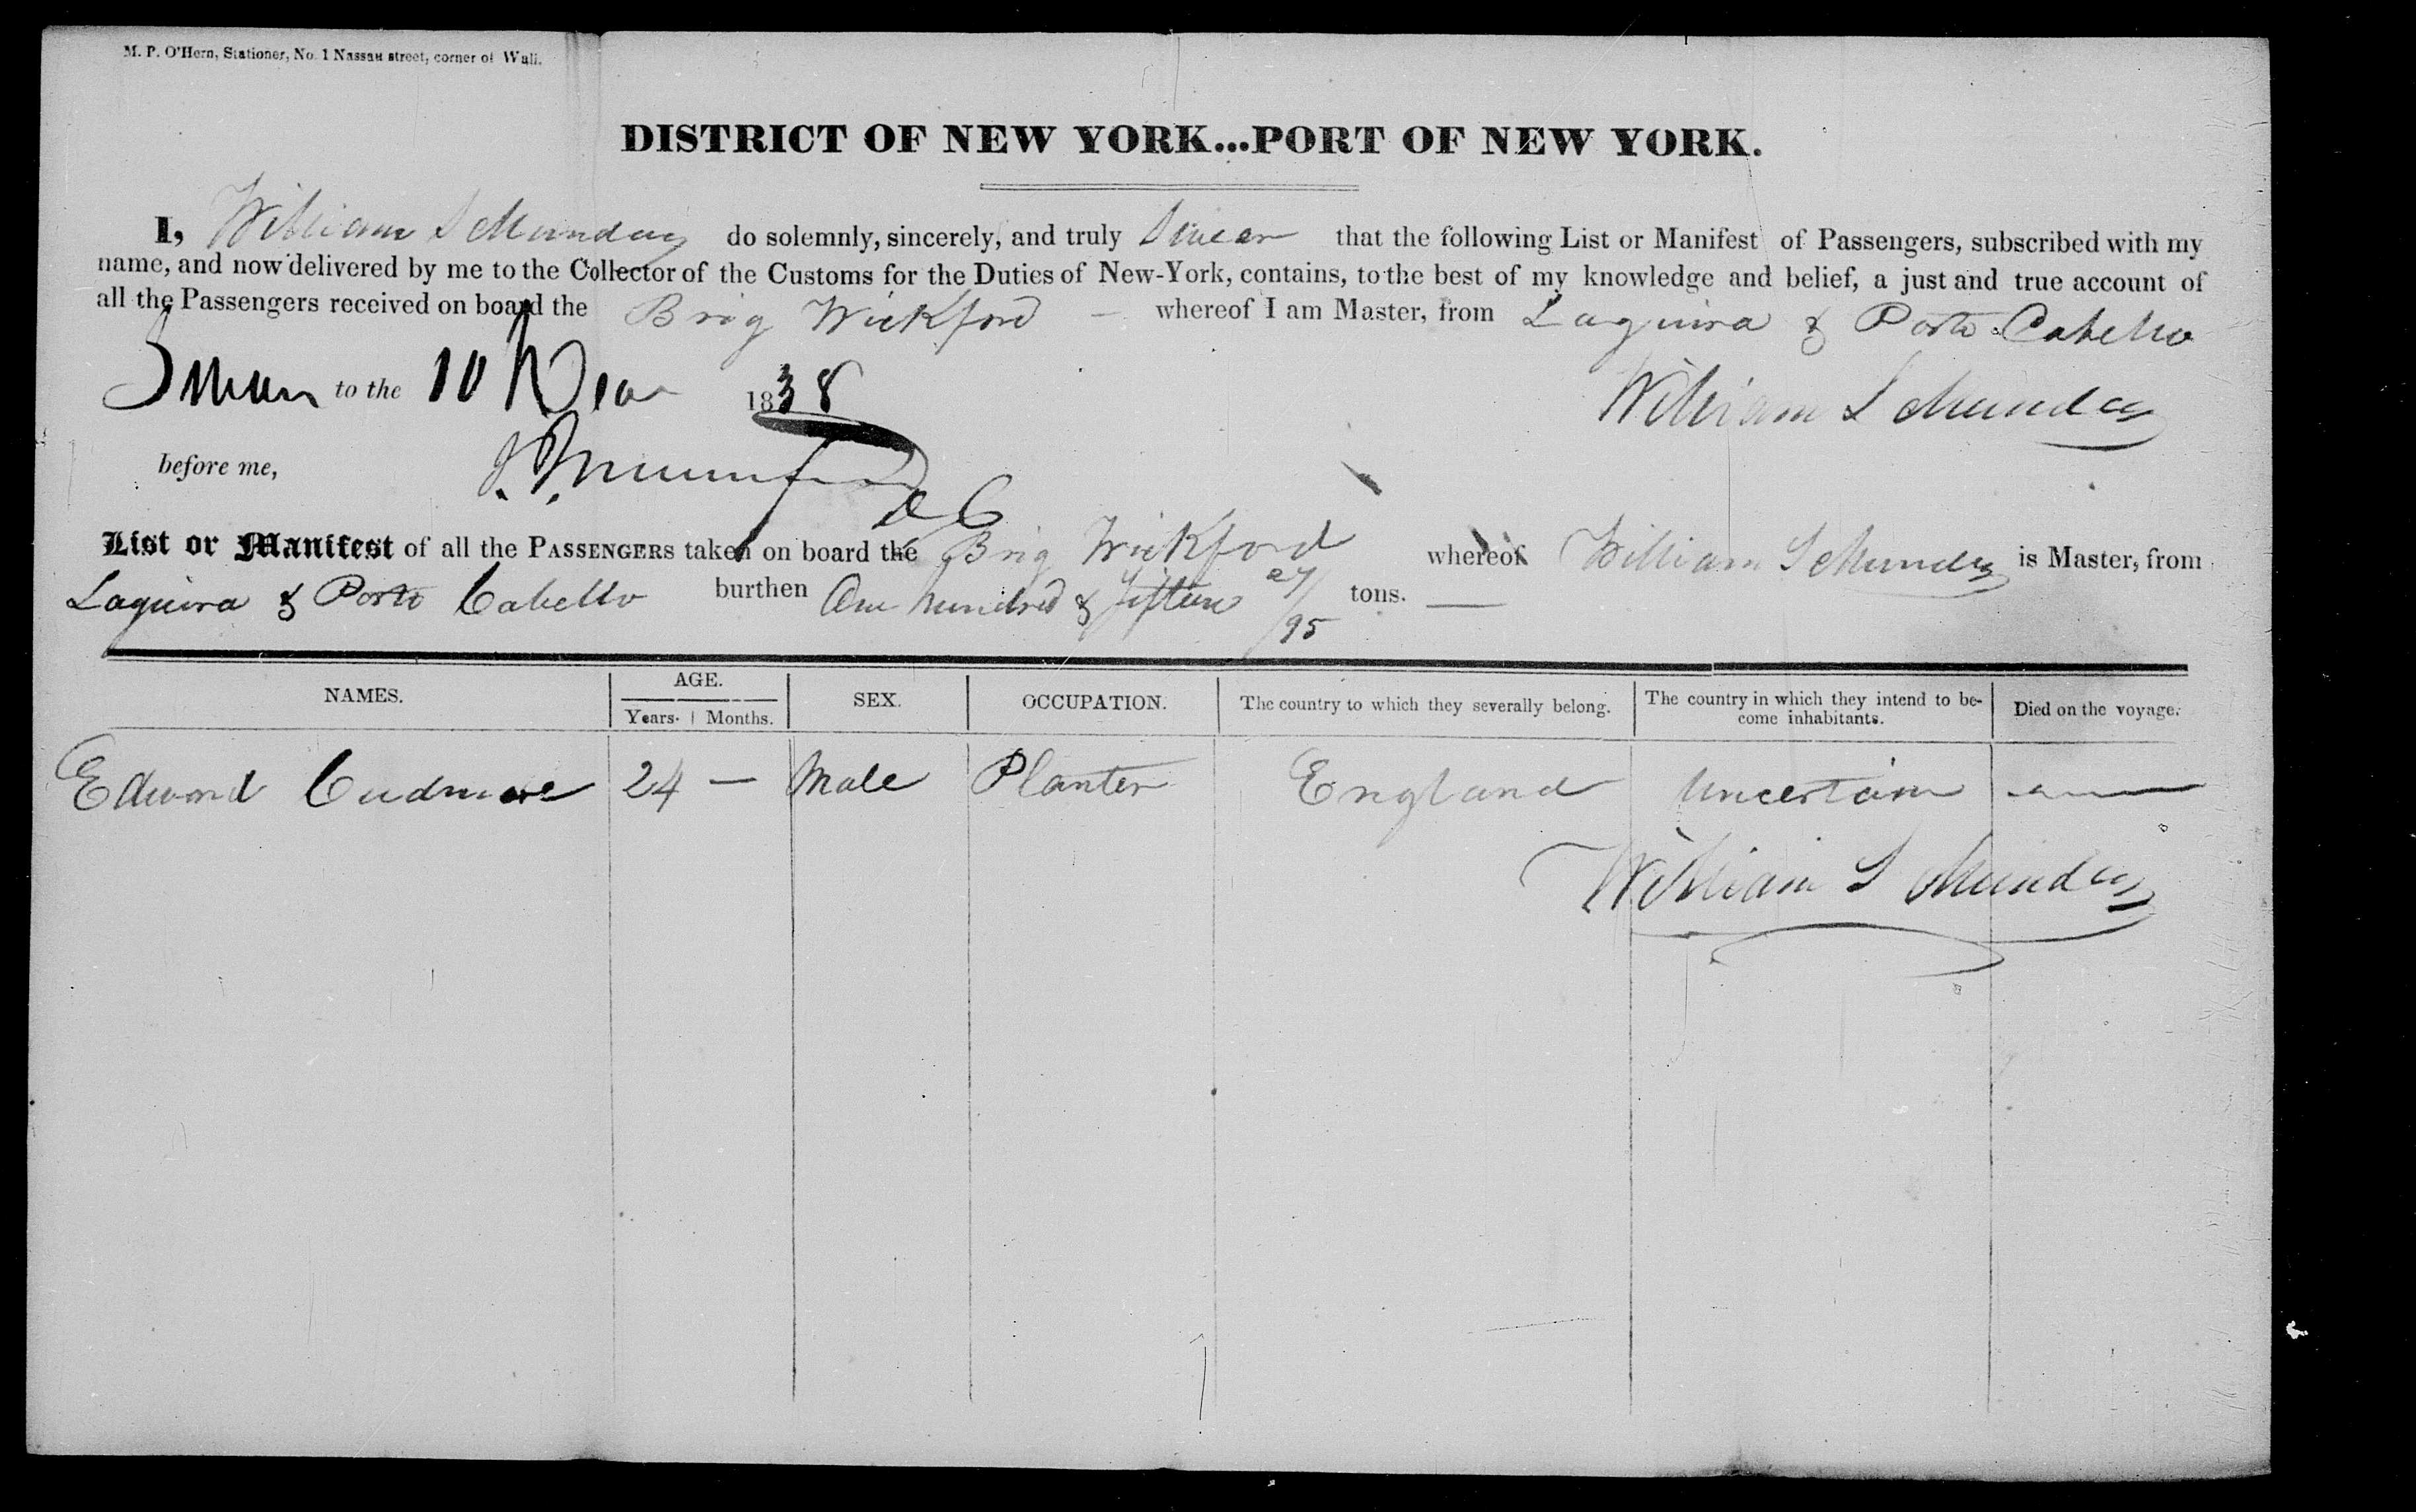 M. P. O'Hern, Stationer, No. 1 Nassau street, corner of Wall.
DISTRICT OF NEW YORK...PORT OF NEW YORK.
I, William S Munday do solemnly, sincerely, and truly Swear that the following List or Manifest of Passengers, subscribed with my
name, and now delivered by me to the Collector of the Customs for the Duties of New-York, contains, to the best of my knowledge and belief, a just and true account of
all the Passengers received on board the Brig Wickford — whereof I am Master, from Laguira & Porto Cabello
Sworn to the 10 1838
William S Munday
before me,
List or Manifest of all the PASSENGERS taken on board the Brig Wickford whereof William S Munday is Master, from
Laguira & Porto Cabello burthen One hundred & fifteen 27/95 tons. —
NAMES. AGE. SEX. OCCUPATION. The country to which they severally belong. The country in which they intend to be- Died on the voyage.
Years. Months. come inhabitants.
Edward Cudmore 24 — Male Planter England Uncertain —
William S Munday